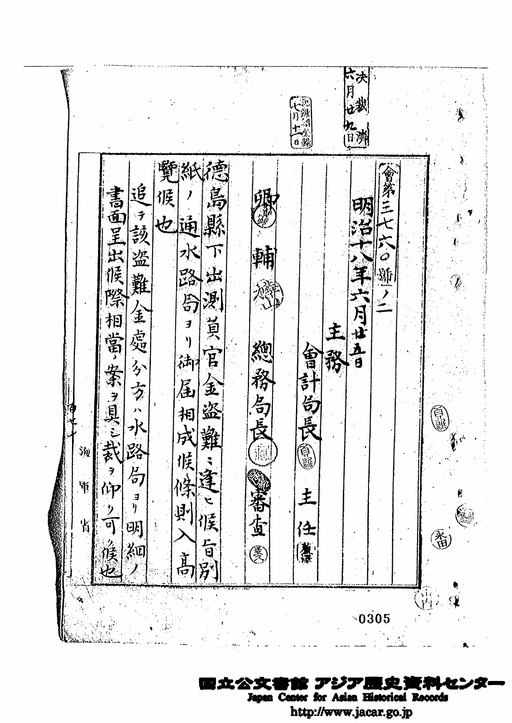 決裁済
六月廿九日
七月十一日
會第三七六〇號ノ二
明治十八年六月廿五日
主務
會計局長 主任
卿 輔 總務局長 審査
德島縣下出測員官金盗難ニ逢ヒ候旨別
紙ノ通水路局ヨリ御届相成候條則入高
覽候也
追テ該盗難金處分方ハ水路局ヨリ明細ノ
書面呈出候際相當ノ案ヲ具シ裁ヲ仰ク可ク候也
海軍省
0305
国立公文書館 アジア歴史資料センター
Japan Center for Asian Historical Records
http://www.jacar.go.jp